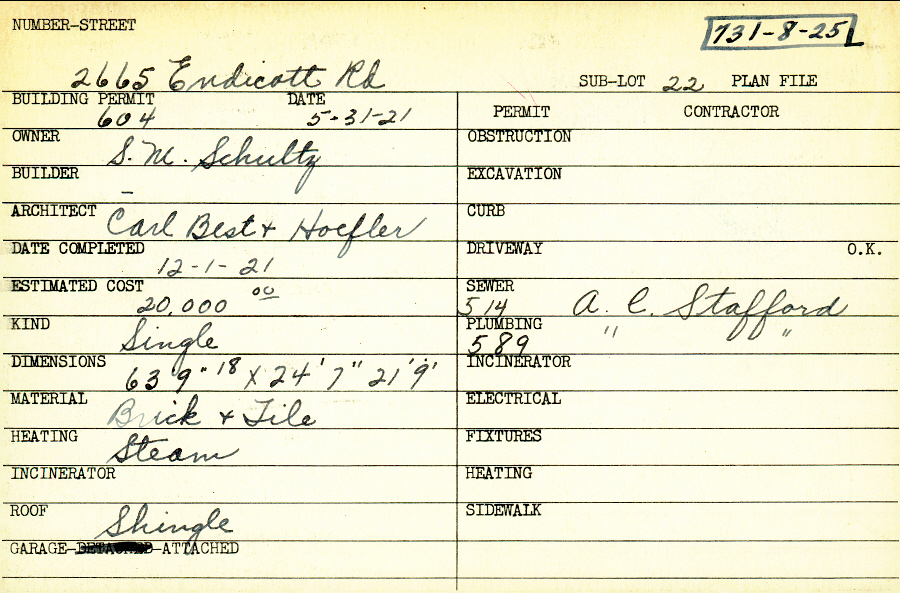 NUMBER-STREET
731-8-25
2665 Endicott Rd SUB-LOT 22 PLAN FILE
BUILDING PERMIT DATE PERMIT CONTRACTOR
604 5-31-21
OWNER S. M. Schultz OBSTRUCTION
BUILDER – EXCAVATION
ARCHITECT Carl Best + Hoefler CURB
DATE COMPLETED DRIVEWAY O.K.
12-1-21
ESTIMATED COST SEWER
20,000 00 514 A. C. Stafford
KIND Single PLUMBING
589 " "
DIMENSIONS 63' 9" 18 X 24' 7" 21' 9' INCINERATOR
MATERIAL Brick + Tile ELECTRICAL
HEATING Steam FIXTURES
INCINERATOR HEATING
ROOF Shingle SIDEWALK
GARAGE-DETACHED-ATTACHED